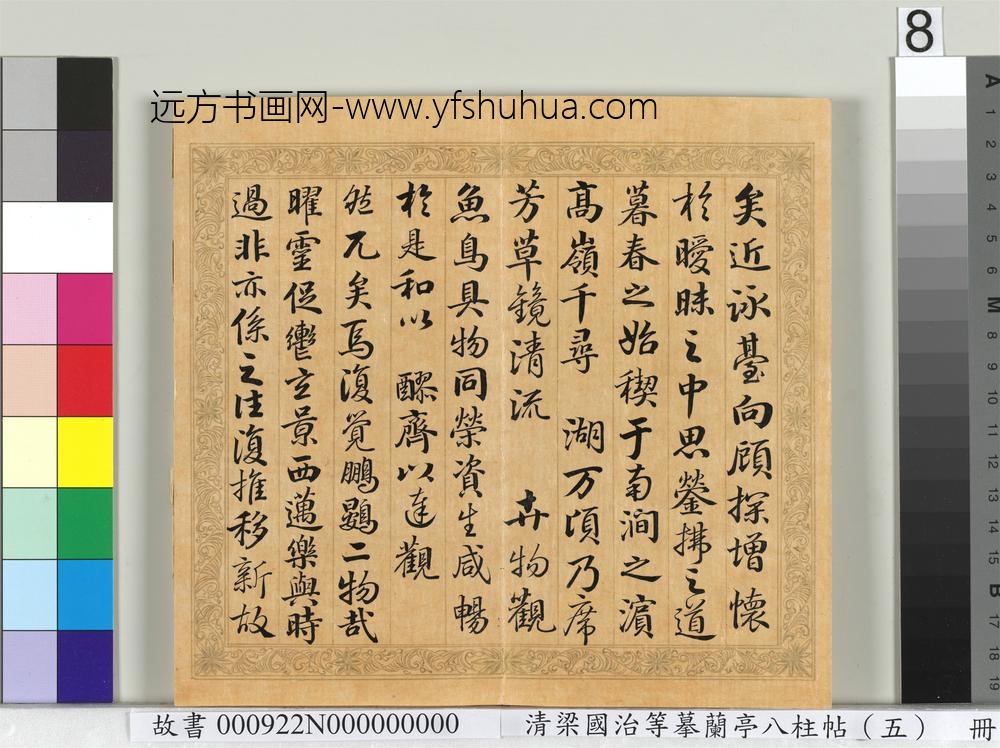 远方书画网-www.yfshuhua.com
8
矣近詠臺向顧探增懷
於曖昧之中思鎣拂之道
暮春之始禊于南澗之濱
高嶺千尋 湖万頃乃席
芳草鏡清流 卉物觀
魚鳥具物同榮資生咸暢
於是和以 醪齊以達觀
然兀矣焉復覺鵬鷃二物哉
曜靈促轡玄景西邁樂與時
過非亦係之往復推移新故
A 1 2 3 4 5 6 M 8 9 10 11 12 13 14 15 B 17 18 19
故書 000922N000000000
清梁國治等摹蘭亭八柱帖（五） 冊